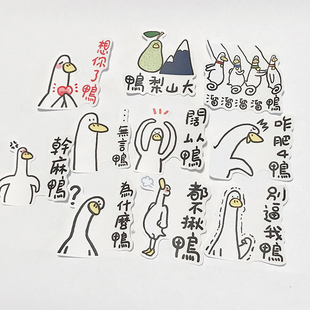 想你了鴨
鴨梨山大
溜溜溜溜鴨
…無言鴨
闊以鴨
咋肥4鴨
幹麻鴨
?
為什麼鴨
都不揪鴨
別逼我鴨